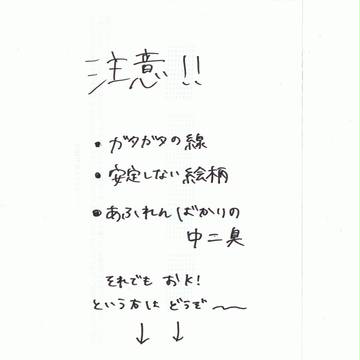 注意!!
・ガタガタの線
・安定しない絵柄
・あふれんばかりの
中二臭
それでも おK!
という方は どうぞ〜
↓ ↓